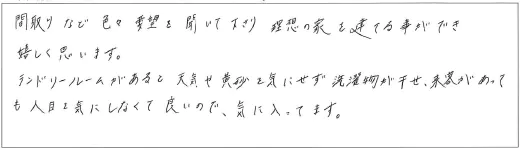 間取りなど色々要望を聞いて下さり理想の家を建てる事ができ
嬉しく思います。
ランドリールームがあると天気や黄砂を気にせず洗濯物が干せ、来客があって
も人目を気にしなくて良いので、気に入ってます。